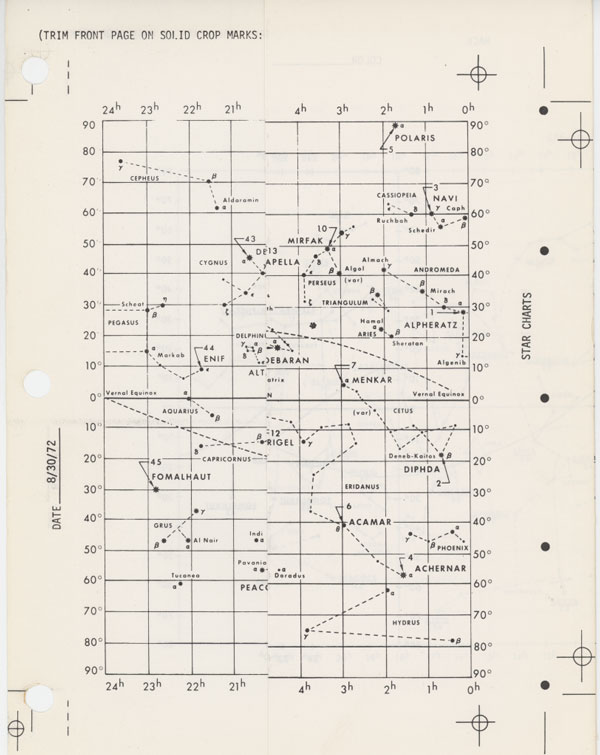 (TRIM FRONT PAGE ON SOLID CROP MARKS:
24h 23h 22h 21h 4h 3h 2h 1h 0h
90 90°
α POLARIS
5
80 80°
γ
CEPHEUS β
70 70°
3
CASSIOPEIA NAVI
Aldaramin
ε δ γ Caph
60 α 60°
Ruchbah α β
10 Schedir
43 γ
MIRFAK
DE13
50 α α 50°
CYGNUS APELLA δ Almach
γ ANDROMEDA
Algol
40 ε β (var) 40°
PERSEUS β Mirach
γ ε
Scheat η TRIANGULUM β δ α
30 β ζ ζ 1 30°
PEGASUS Hamal ALPHERATZ
44 DELPHINI α ARIES
20 β Sheratan 20°
α ENIF DEBARAN γ
Markab ALT Algenib
10 ε atrix 7 10°
α MENKAR
Vernal Equinox N Vernal Equinox
0° α 0°
AQUARIUS (var) CETUS
β
10 12 10°
δ β RIGEL γ Deneb-Kaitos β
CAPRICORNUS
20° 20°
45 DIPHDA
FOMALHAUT 2
30 ERIDANUS 30°
α
γ 6
40° ACAMAR 40°
GRUS θ γ α
β α Al Nair Indi α β PHOENIX
50° 4 50°
Pavonis ACHERNAR
Tucanae α α Doradus α
60° α PEACO α 60°
70° HYDRUS 70°
γ
β
80° 80°
90° 90°
24h 23h 22h 21h 4h 3h 2h 1h 0h
DATE 8/30/72
STAR CHARTS